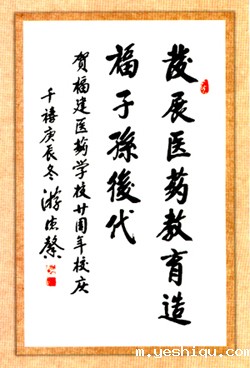 發展医药教育造
福子孫後代
贺福建医药学校廿周年校庆
千禧庚辰冬 游德馨
m.yeshiqu.com